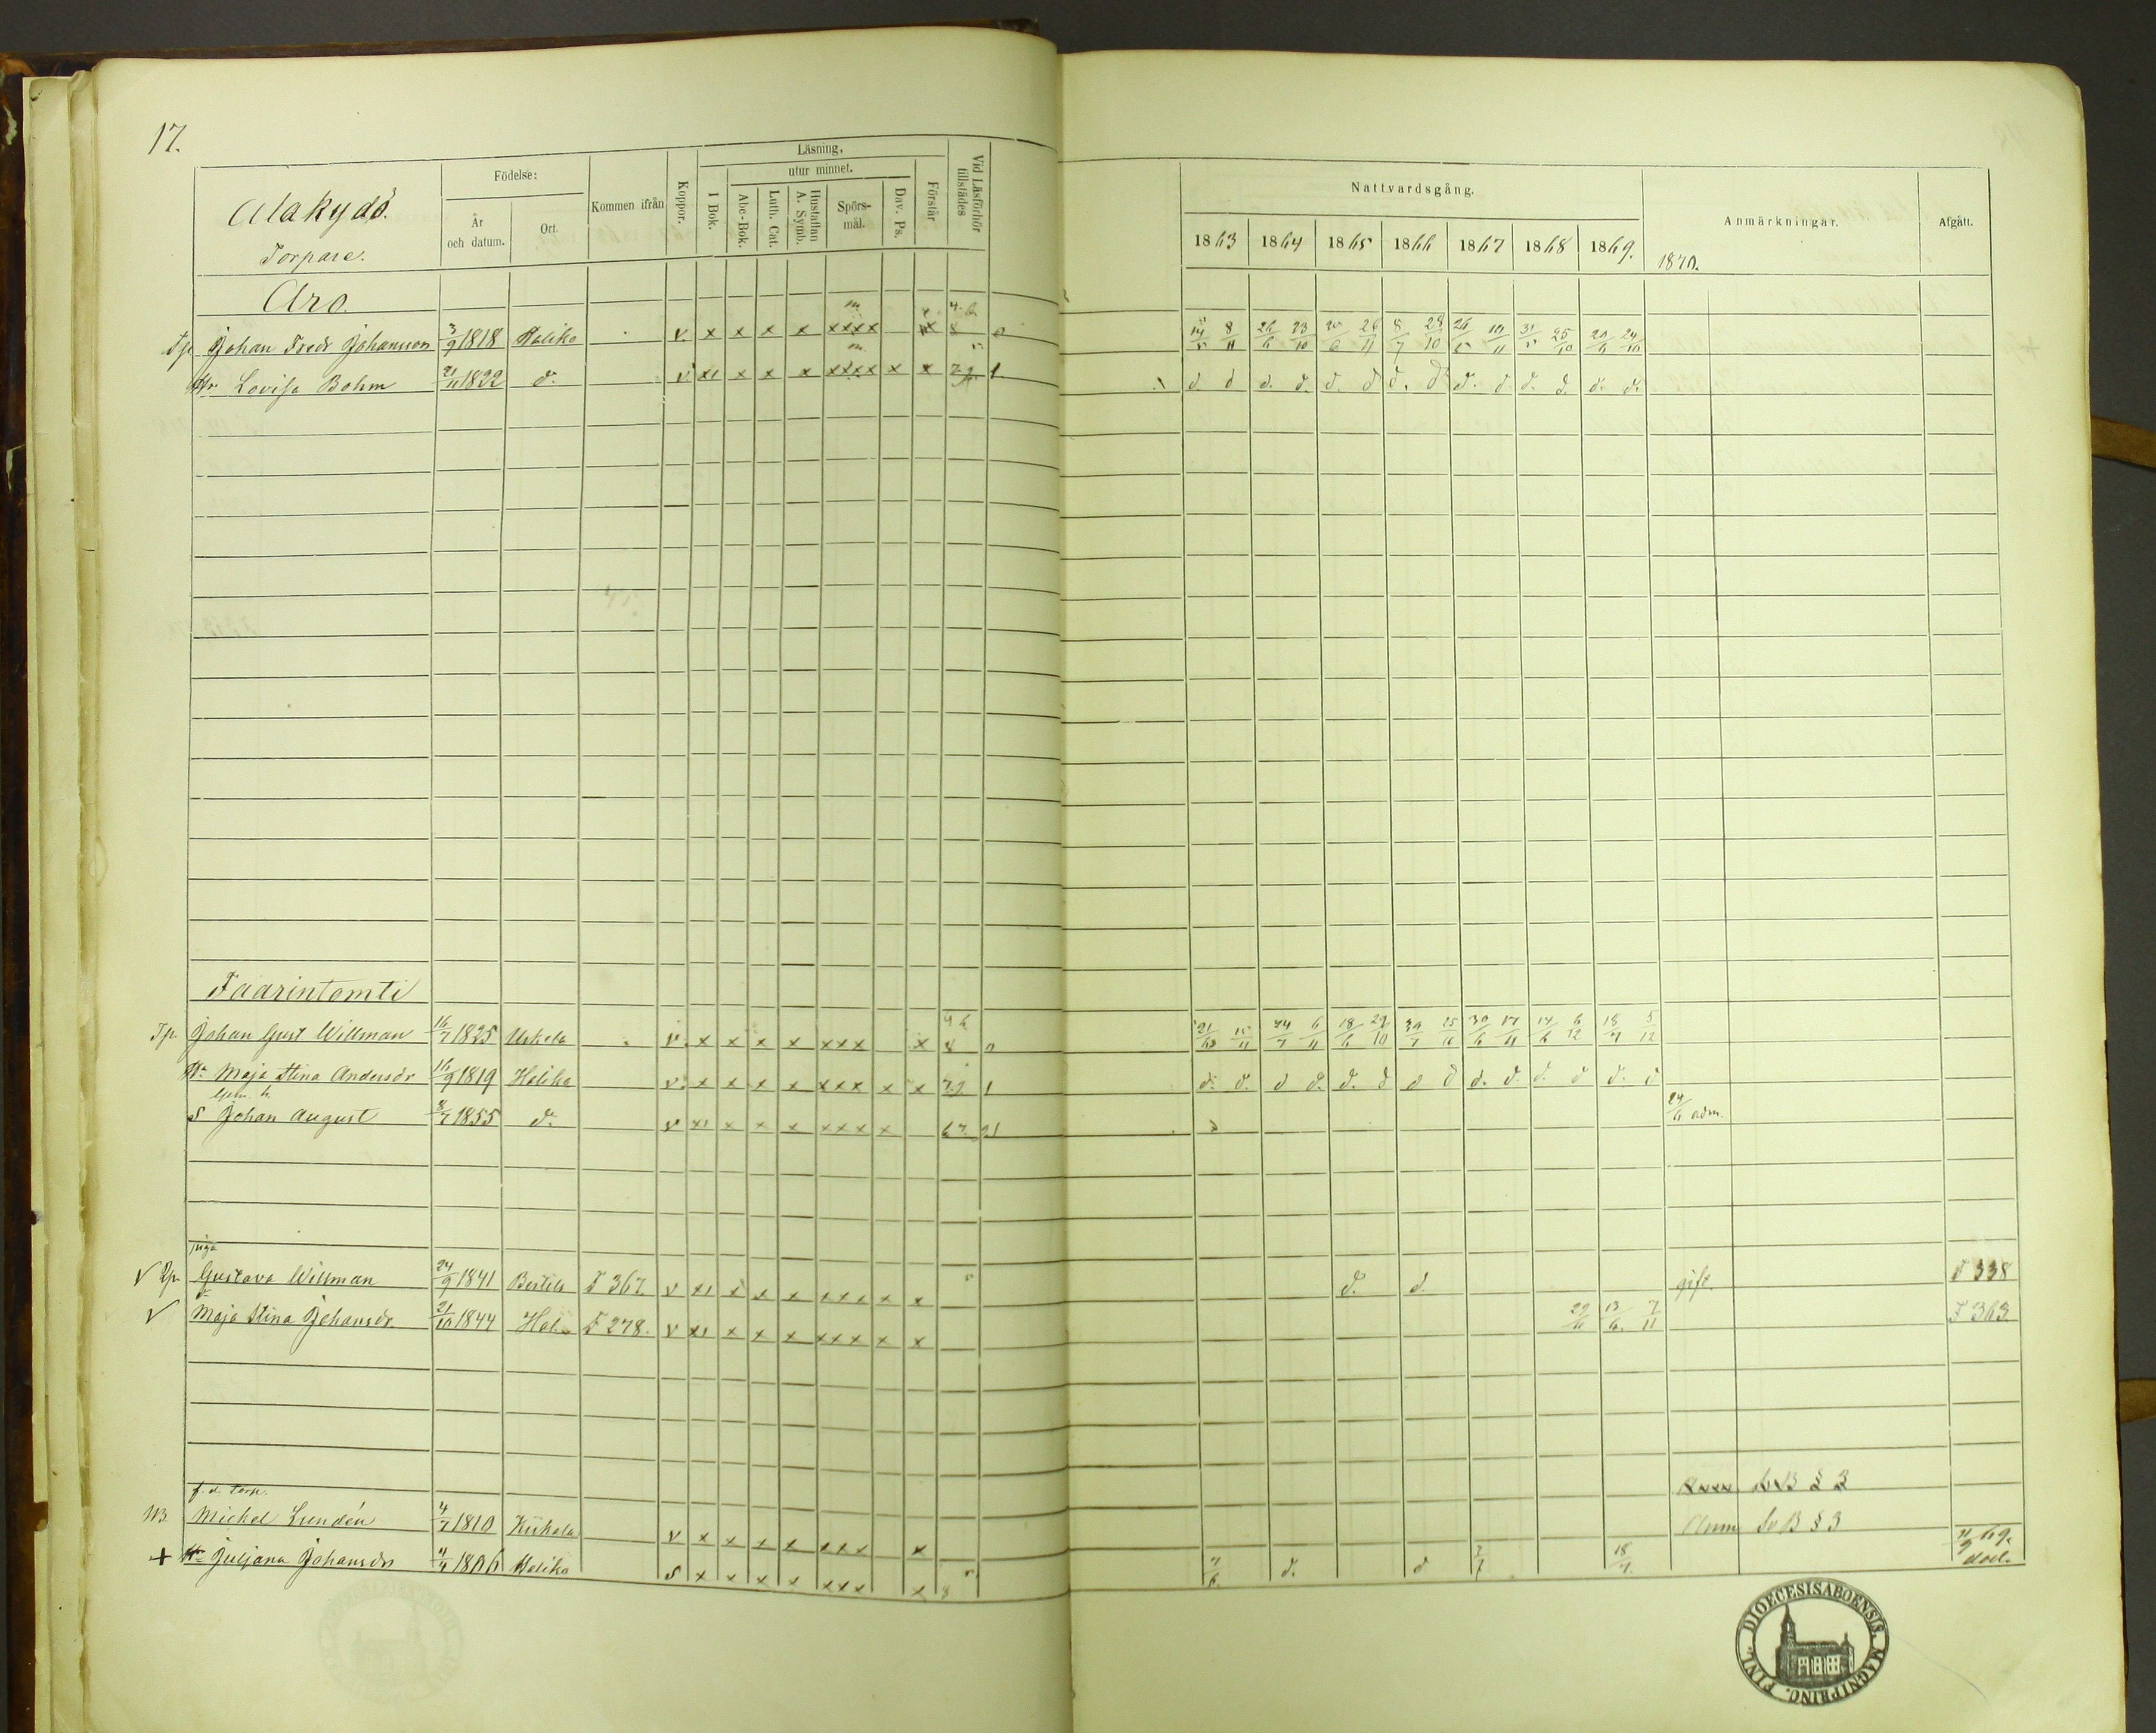 17.
Alakydö.
Torpare.
Födelse:
År och datum.
Ort.
Kommen ifrån
Koppor.
Läsning,
I Bok.
utur minnet.
Abc-Bok.
Luth. Cat.
Hustaflan A. Symb.
Spörs-mål.
Dav. Ps.
Förstår
Vid Läsförhör tillstädes
Nattvardsgång.
1863 1864 1865 1866 1867 1868 1869.
1870.
Anmärkningar.
Afgått.
Aro.
Tp Johan Fredr Johansson 3/9 1818 Haliko v. x x x x xxxx x 8 0 14/5 8/11 26/6 23/10 20/6 26/11 8/7 28/10 26/5 10/11 31/5 25/10 20/6 24/10
Hu Lovisa Bohm 21/11 1822 d:o v x x x x xxxx x x 1 d d d. d. d. d d. d d. d d. d. d. d.
Faarintomti
Tp. Johan Gust Willman 16/7 1825 Uskela v. x x x x xxx x 8 0 21/6 15/11 24/7 6/11 18/6 29/10 30/7 25/11 30/6 17/11 14/6 6/12 18/7 5/12
Hu Maja Stina Andersdr 16/9 1819 Haliko v. x x x x xxx x x 1 d. d. d d. d. d d d d. d. d. d d. d
S Johan August 8/7 1855 d:o v x x x x xxxx x 67. 24/6 adm.
piga
v Gustava Willman 24/9 1841 Bertils F 367. v x x x x xxxx x x d. d. gift. F 338
v Maja Stina Johansdr. 21/10 1844 Hal. F 278. v x x x x xxxx x x 29/6 13/6. 7/11 F 363
b B § 3
f. d. torp.
Michel Lundén 4/7 1810 Kiikala v x x x x xxx x Anm b B § 3
+ Hu Juljana Johansdr 4/4 1806 Haliko S x x x x xxx x 8 d. d 7/7 18/7. 11/9 69. död.
FINL. DIOECESIS ABOENSIS. MAGNI PRINC.